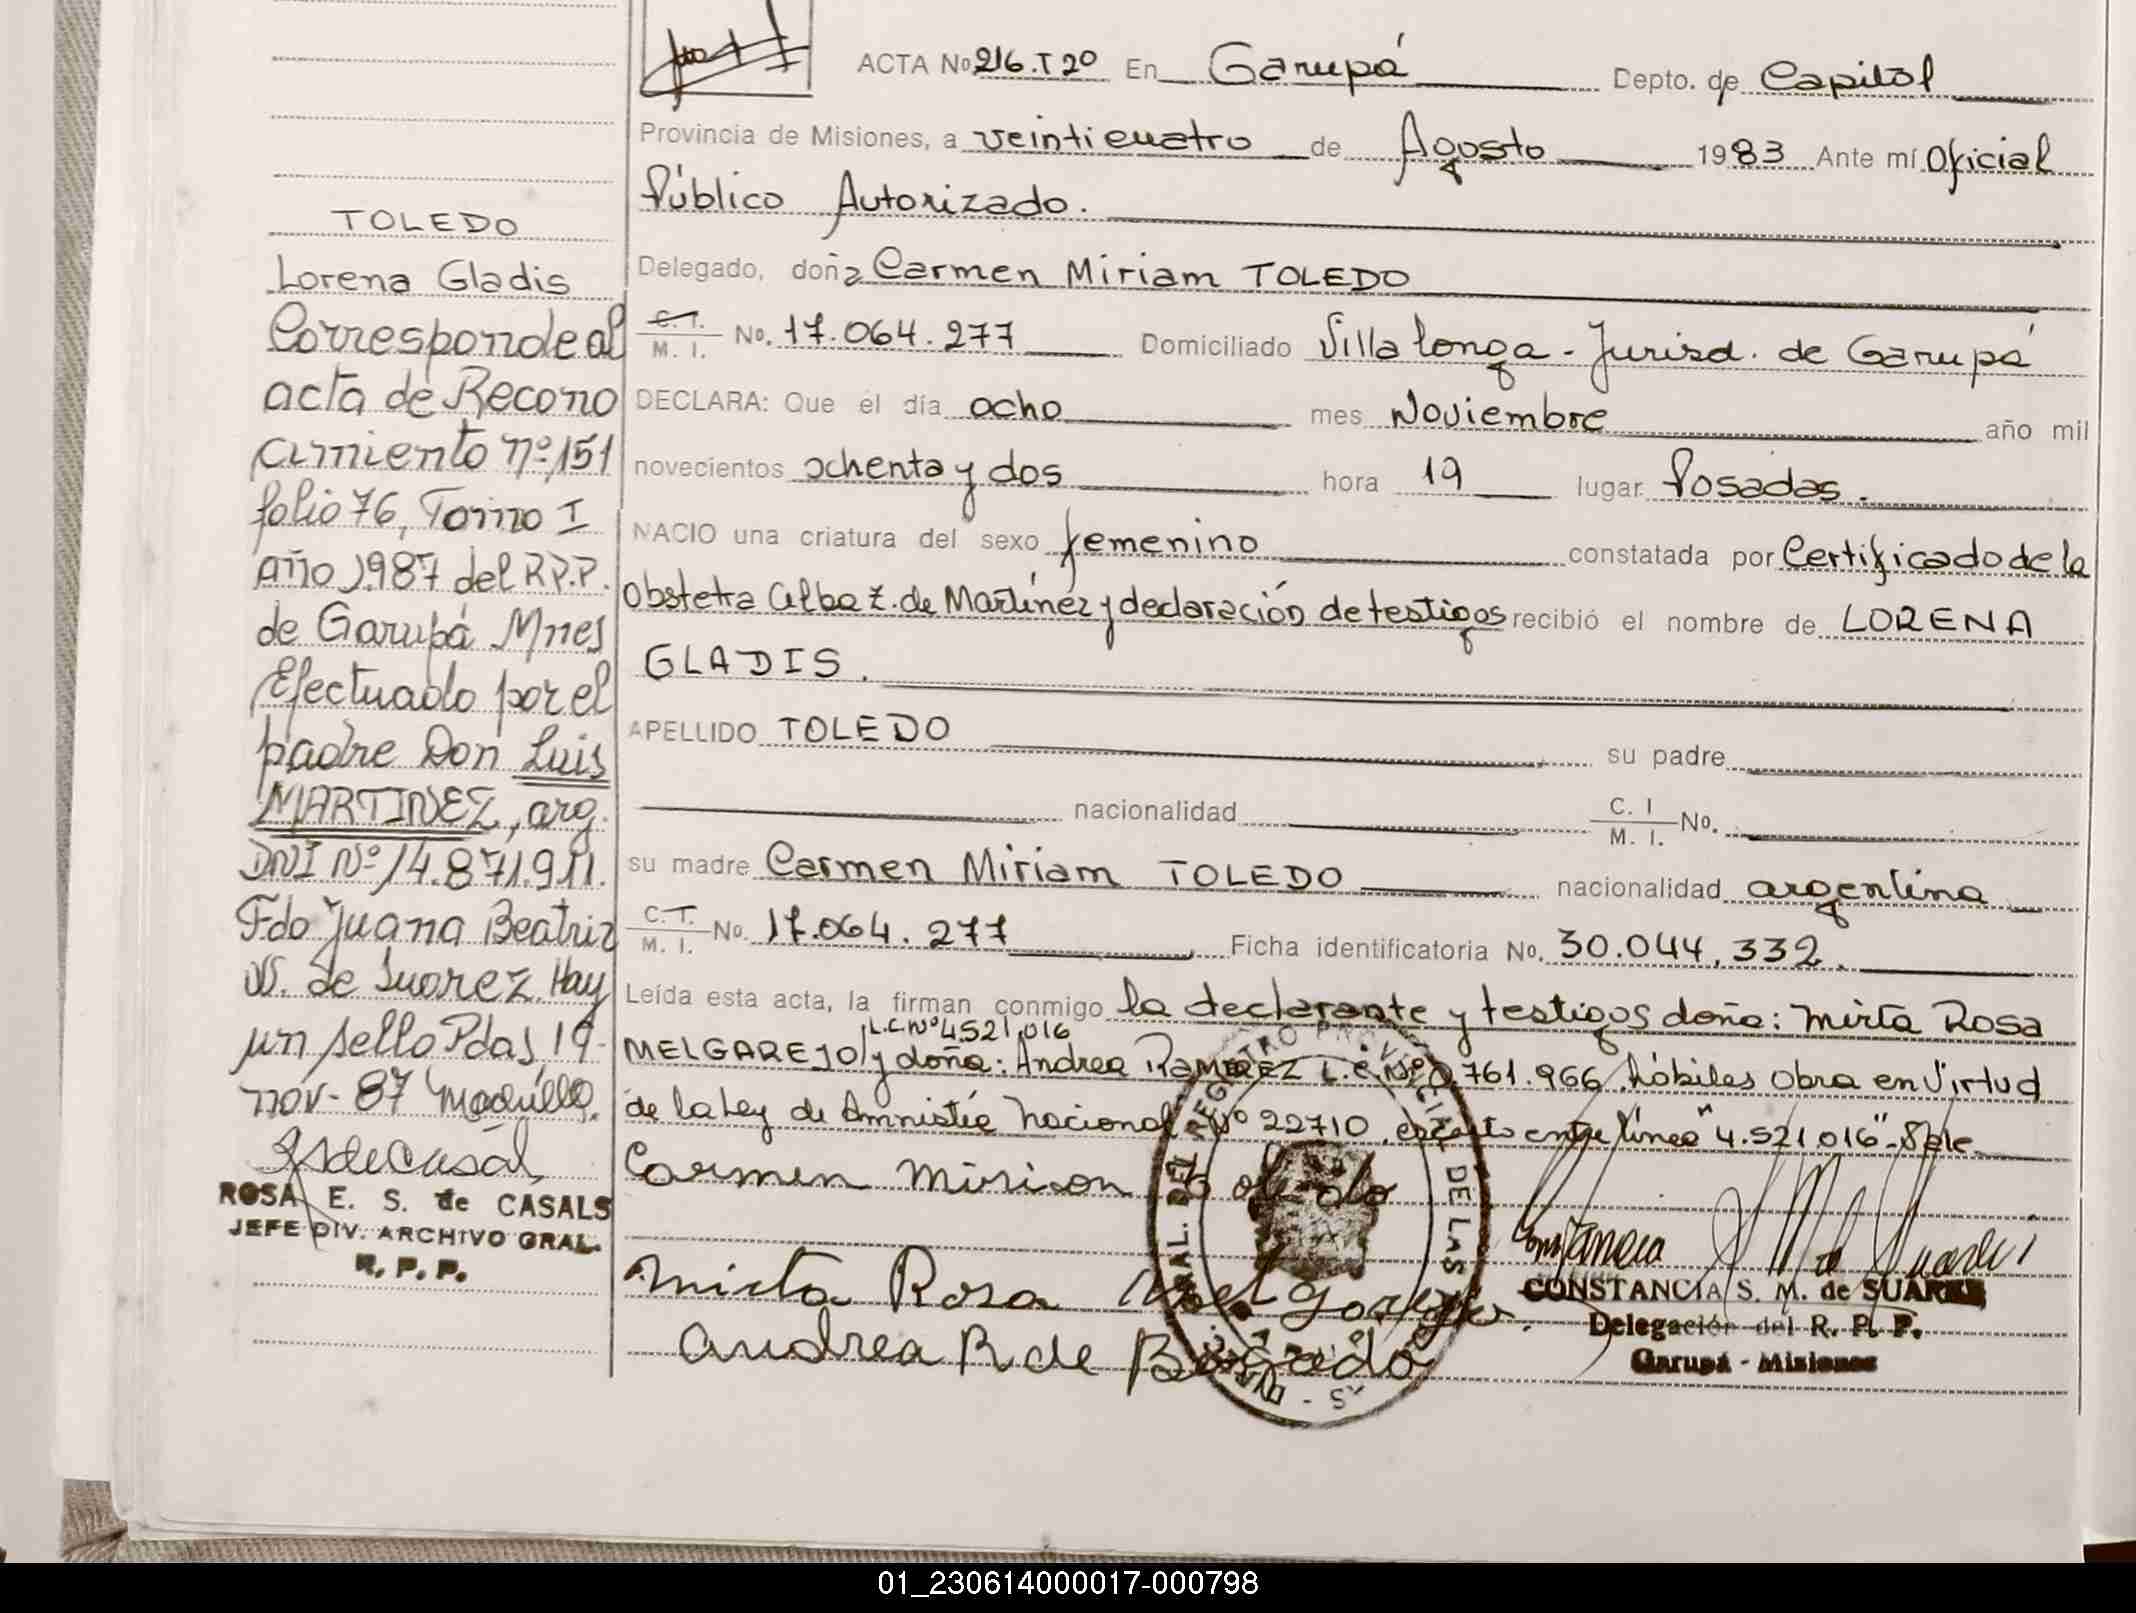 ACTA No 216.T 2º En Garupá Depto. de Capital
Provincia de Misiones, a veinticuatro de Agosto 1983 Ante mí Oficial
Público Autorizado.
Delegado, doña Carmen Miriam TOLEDO
C.I. M. I. No. 17.064.277 Domiciliado Villa longa - Jurisd. de Garupá
DECLARA: Que el día ocho mes Noviembre año mil
novecientos ochenta y dos hora 19 lugar Posadas.
NACIO una criatura del sexo femenino constatada por Certificado de la
Obstetra Alba Z. de Martínez y declaración de testigos recibió el nombre de LORENA
GLADIS.
APELLIDO TOLEDO su padre
nacionalidad C. I M. I. No.
su madre Carmen Miriam TOLEDO nacionalidad argentina
C.I. M. I. No. 17.064.277 Ficha identificatoria No. 30.044.332.
Leída esta acta, la firman conmigo la declarante y testigos doña: Mirta Rosa
L.C.Nº 4.521.016
MELGAREJO/y doña: Andrea RAMIREZ L.C. Nº 0.761.966 hábiles Obra en Virtud
de la Ley de Amnistía Nacional Nº 22710. escrito entre línea "4.521.016"- Vale
Carmen Miriam Toledo
Mirta Rosa Melgarejo
Andrea R de Bogado
CONSTANCIA S. M. de SUAREZ
Delegación del R. P. P.
Garupá - Misiones
TOLEDO
Lorena Gladis
Corresponde al
acta de Recono
cimiento nº 151
folio 76, Tomo I
año 1987 del R.P.P.
de Garupá Mnes
Efectuado por el
padre Don Luis
MARTINEZ, arg.
DNI Nº 14.871.911.
Fdo Juana Beatriz
N. de Suarez. Hay
un sello Pdas 19-
nov- 87
ROSA E. S. de CASALS
JEFE DIV. ARCHIVO GRAL.
R. P. P.
01_230614000017-000798